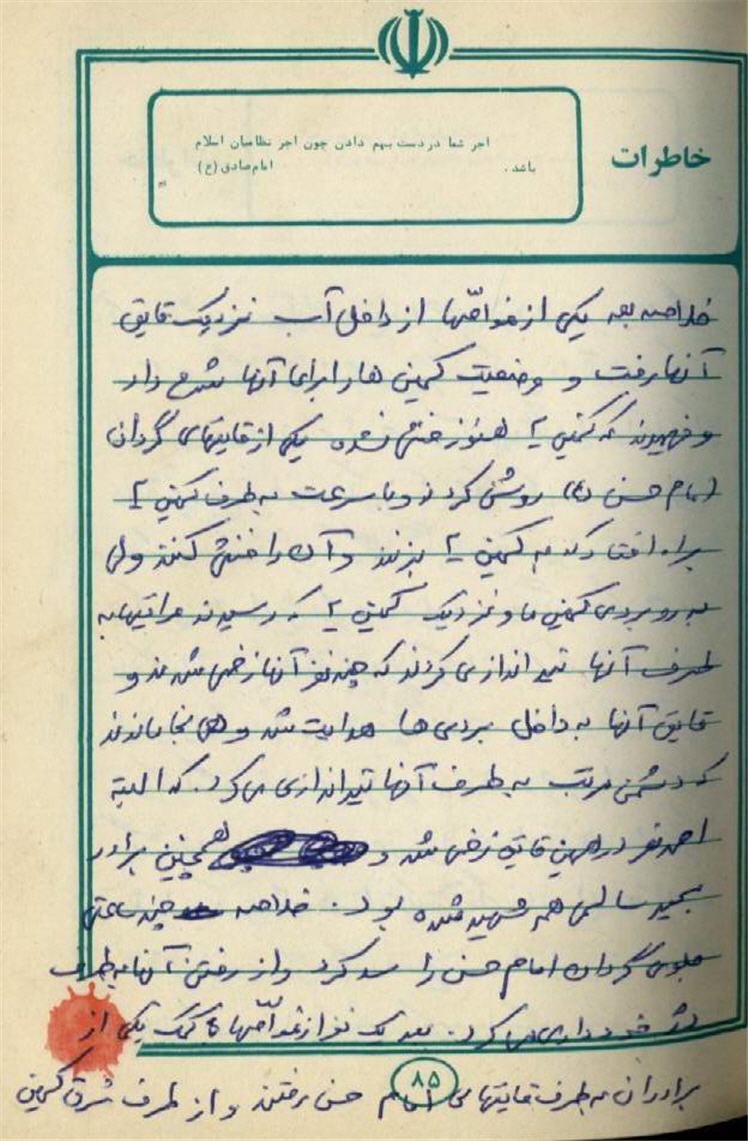 خاطرات
اجر شما در دست بهم دادن چون اجر نظامیان اسلام
باشد. امام صادق (ع)
خلاصه بعد یکی از غواصها از داخل آب نزدیک قایق
آنها رفت و وضعیت کمین ها را برای آنها شرح داد
و فهمیدند که کمین ۲ هنوز خنثی نشده یکی از قایقهای گردان
امام حسن (ع) روشن کردند و با سرعت به طرف کمین ۲
براه افتادند که به کمین ۲ بزنند و آن را خنثی کنند ولی
به روبروی کمین ما و نزدیک کمین ۲ که رسیدند عراقیها به
طرف آنها تیراندازی کردند که چند نفر آنها زخمی شدند و
قایق آنها به داخل بردی ها هدایت شد و همانجا ماندند
که دشمن مرتب به طرف آنها تیراندازی می کرد. که البته
نفر در همین قایق زخمی شد و همچنین برادر
مجید سالمی هم شهید شده بود. خلاصه چند ساعتی
جلوی گردان امام حسن را سد کرد و از رفتن آنها به طرف
دژ خودداری می کرد. بعد یک نفر از غواصها با کمک یکی از
برادران به طرف قایقهای امام حسن رفتند و از طرف شرق کمین
۸۵